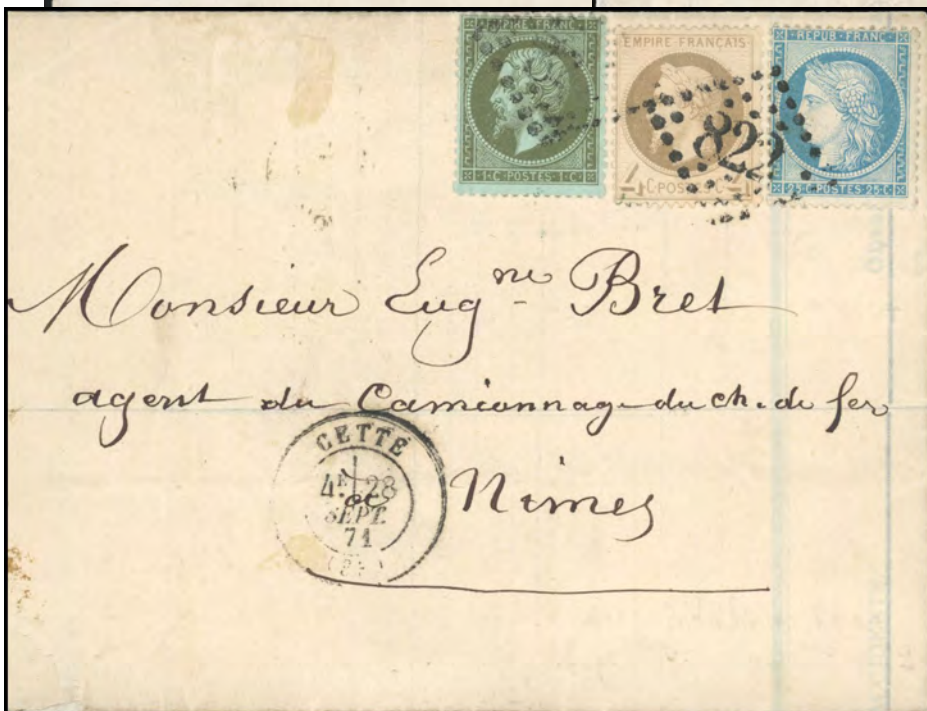 EMPIRE FRANC
1·C·POSTES·1·C
EMPIRE FRANÇAIS
4 C·POSTES·C 4
REPUB·FRANC
25·C·POSTES·25·C
822
Monsieur Eug.ne Bret
agent du Camionnage du ch. de fer
Nimes
CETTE
4E 28
SEPT.
71